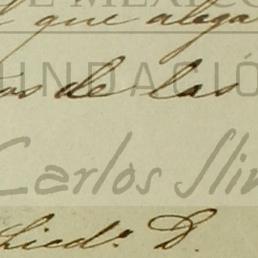 E MÉXICO
que alega
UNDACIÓ
os de las
Carlos Slim
Licdº D.